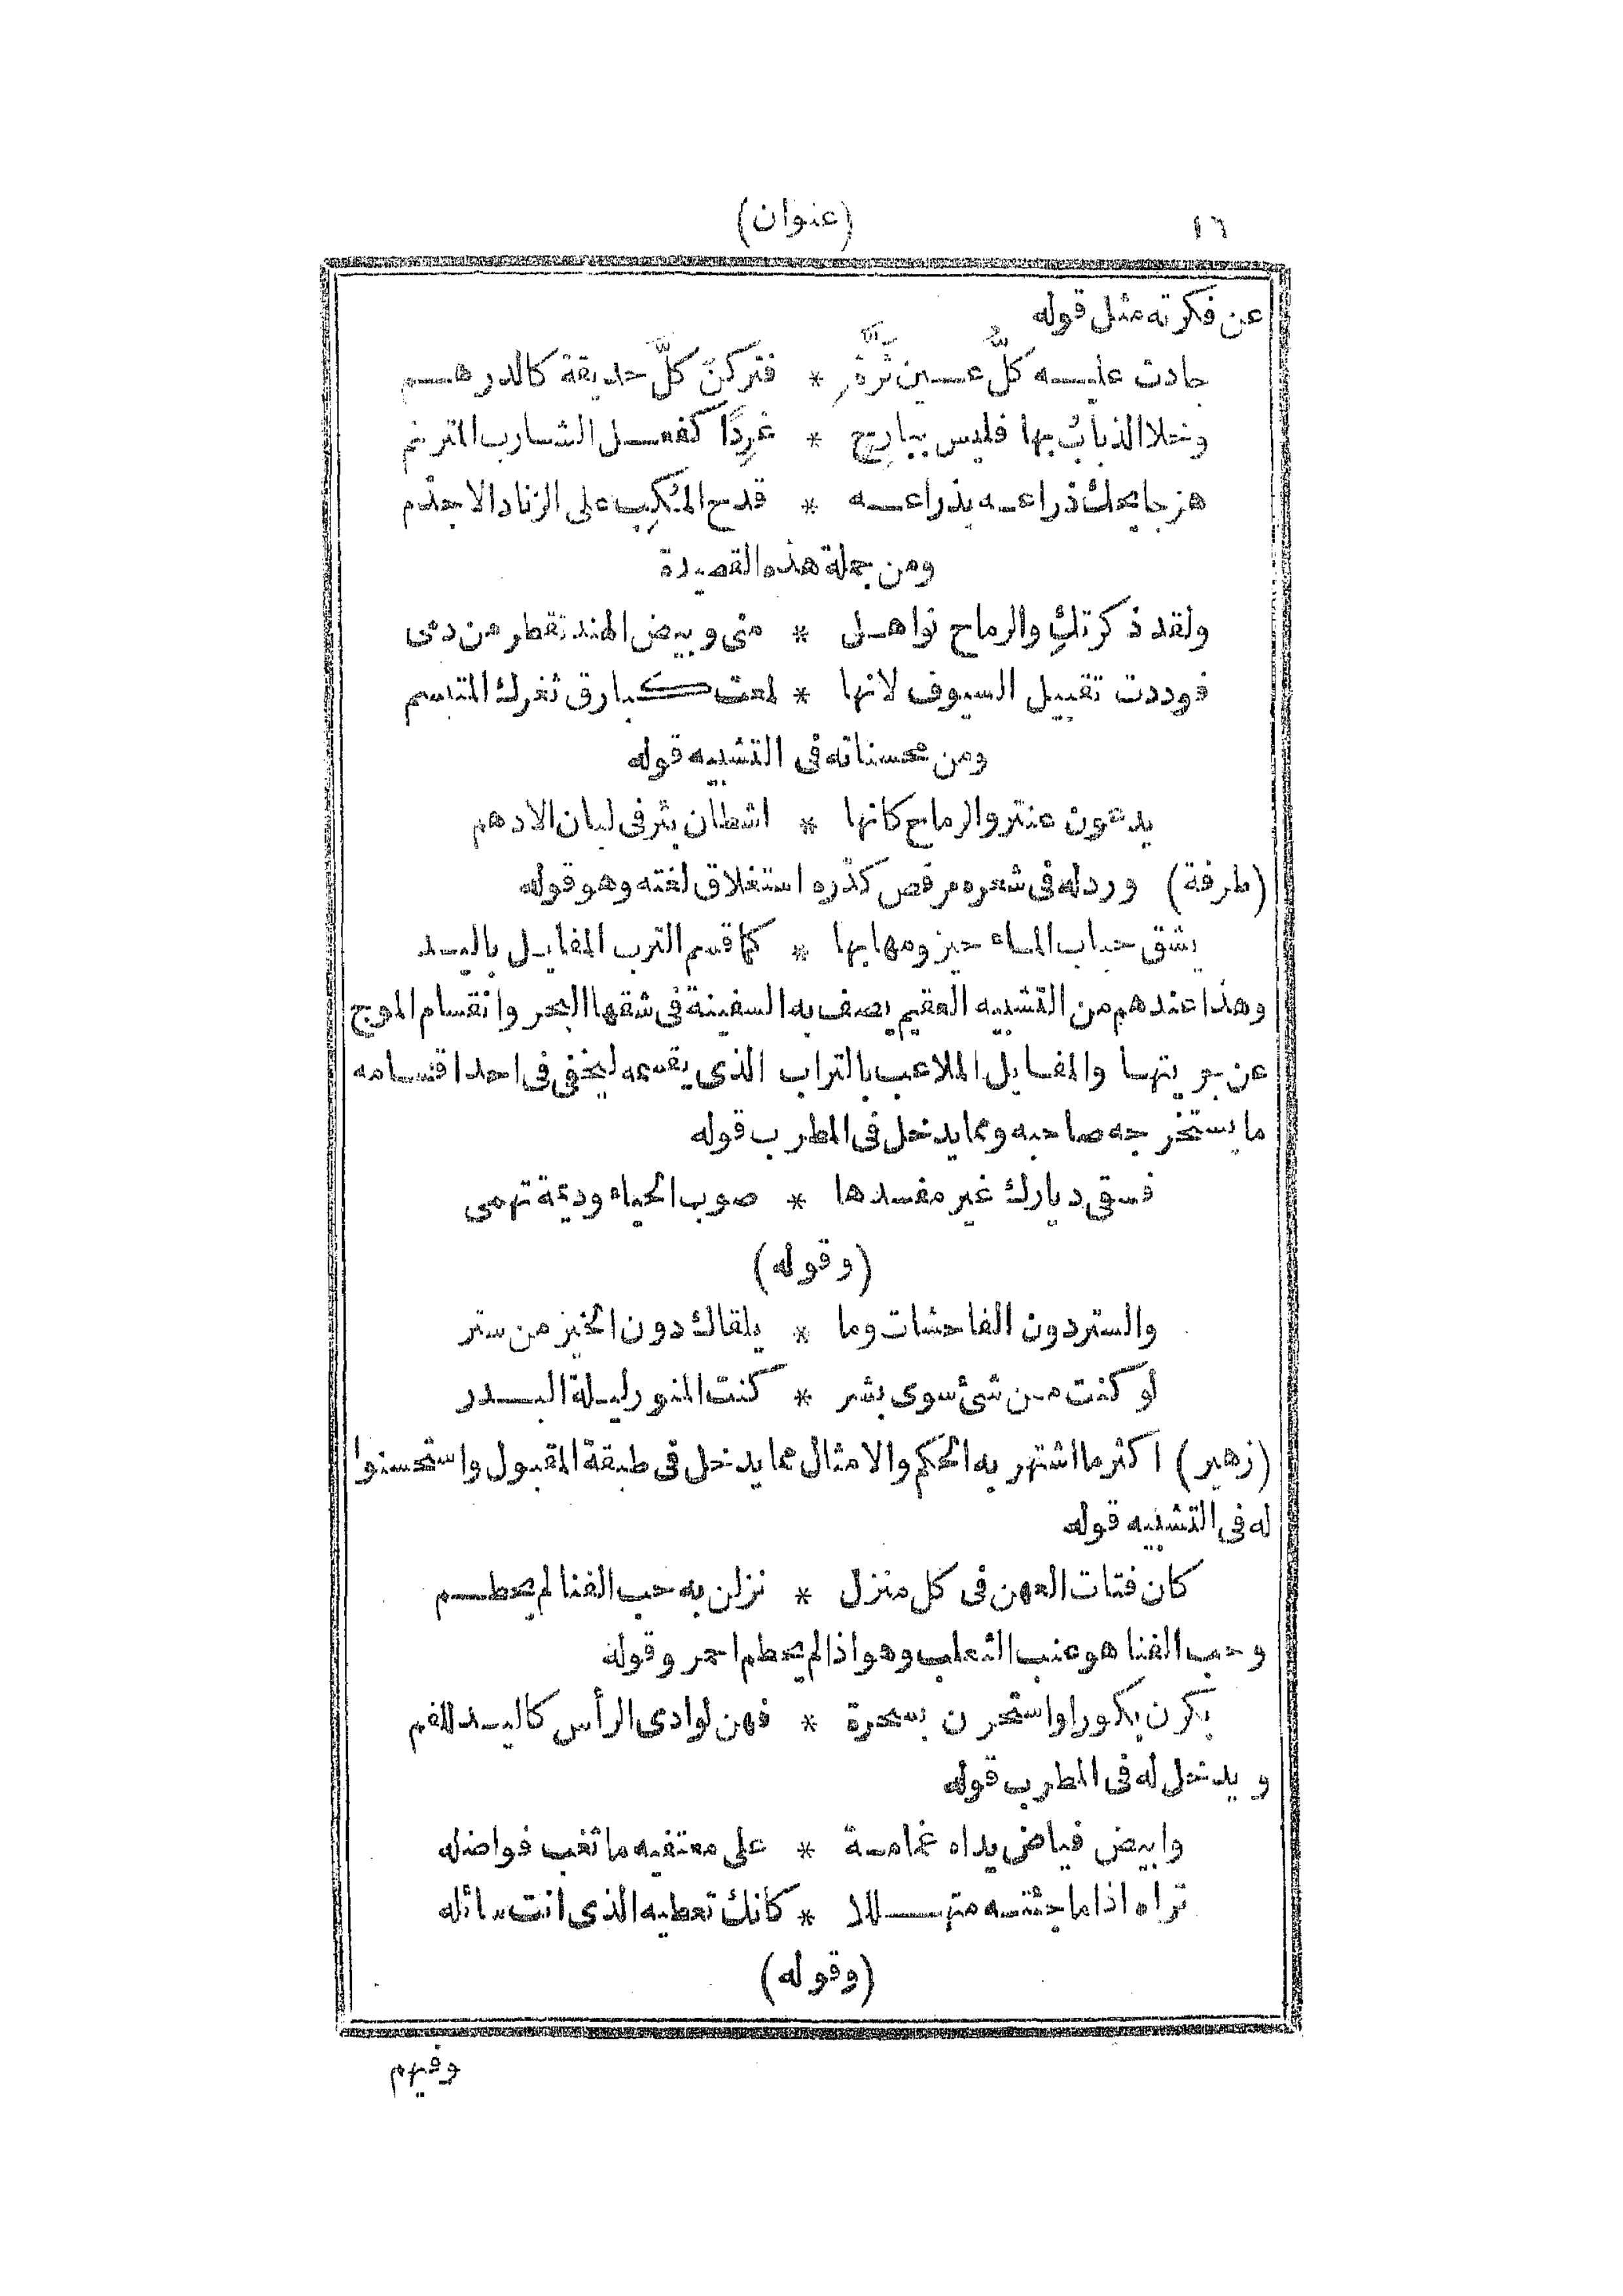 ١٦
(عنوان)
عن فكرته مثل قوله
جادت عليه كلُّ عين ثَرَّةٍ * فتركن كلّ حديقة كالدرهم
وخلا الذبابُ بها فليس ببارِحٍ * غرِدًا كفعل الشارب المترنم
هزجا يحك ذراعه بذراعه * قدح المُكِبِ على الزناد الاجذم
ومن جملة هذه القصيدة
ولقد ذكرتكِ والرماح نواهل * منى وبيض الهند تقطر من دمى
فوددت تقبيل السيوف لانها * لمعت كبارق ثغرك المتبسم
ومن محسناته فى التشبيه قوله
يدعون عنتر والرماح كانها * اشطان بئر فى لبان الادهم
(طرفة) ورد له فى شعره مرقص كدّره استغلاق لغته وهو قوله
يشق حباب الماء حيزومها بها * كما قسم الترب المفايل باليد
وهذا عندهم من التشبيه العقيم يصف به السفينة فى شقها البحر وانقسام الموج
عن جويتها والمفايل الملاعب بالتراب الذى يقسمه ليخفى فى احد اقسامه
ما يستخرجه صاحبه ومما يدخل فى المطرب قوله
فسقى ديارك غير مفسدها * صوب الحياء وديمة تهمى
(وقوله)
والستر دون الفاحشات وما * يلقاك دون الخير من ستر
لو كنت من شئ سوى بشر * كنت المنور ليلة البدر
(زهير) اكثر ما اشتهر به الحكم والامثال مما يدخل فى طبقة المقبول واستحسنوا
له فى التشبيه قوله
كان فتات العهن فى كل منزل * نزلن به حب الفنا لم يحطم
وحب الفنا هو عنب الثعلب وهو اذا لم يحطم احمر وقوله
بكرن بكورا واستحرن بسحرة * فهن لوادى الرأس كاليد للفم
ويدخل له فى المطرب قوله
وابيض فياض يداه غمامة * على معتفيه ما تغب فواضله
تراه اذا ما جئته متهللا * كانك تعطيه الذى انت سائله
(وقوله)
وفيهم